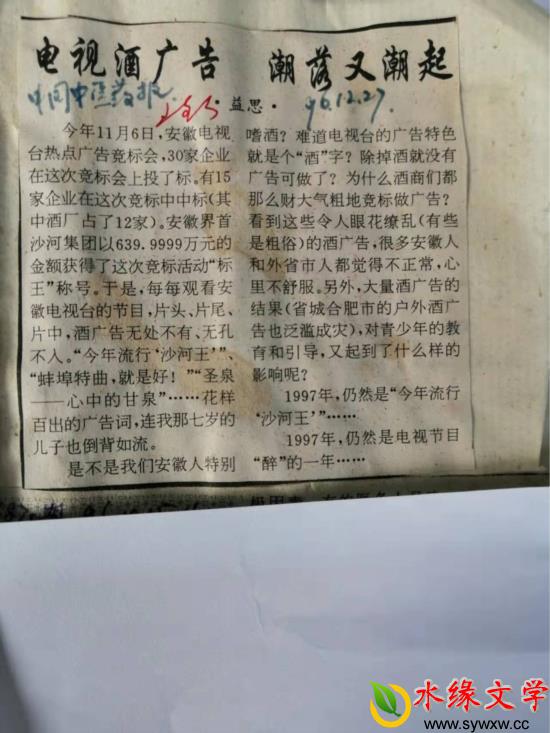 电视酒广告 潮落又潮起
中国中医药报
·益思·
96.12.27.
今年11月6日,安徽电视
台热点广告竞标会,30家企业
在这次竞标会上投了标。有15
家企业在这次竞标中中标(其
中酒厂占了12家)。安徽界首
沙河集团以639.9999万元的
金额获得了这次竞标活动“标
王”称号。于是,每每观看安
徽电视台的节目,片头、片尾、
片中,酒广告无处不有、无孔
不入。“今年流行‘沙河王’”、
“蚌埠特曲,就是好!”“圣泉
——心中的甘泉”……花样
百出的广告词,连我那七岁的
儿子也倒背如流。
是不是我们安徽人特别
嗜酒?难道电视台的广告特色
就是个“酒”字?除掉酒就没有
广告可做了?为什么酒商们都
那么财大气粗地竞标做广告?
看到这些令人眼花缭乱(有些
是粗俗)的酒广告,很多安徽人
和外省市人都觉得不正常,心
里不舒服。另外,大量酒广告的
结果(省城合肥市的户外酒广
告也泛滥成灾),对青少年的教
育和引导,又起到了什么样的
影响呢?
1997年,仍然是“今年流行
‘沙河王’”……
1997年,仍然是电视节目
“醉”的一年……
水缘文学
www.sywxw.cc